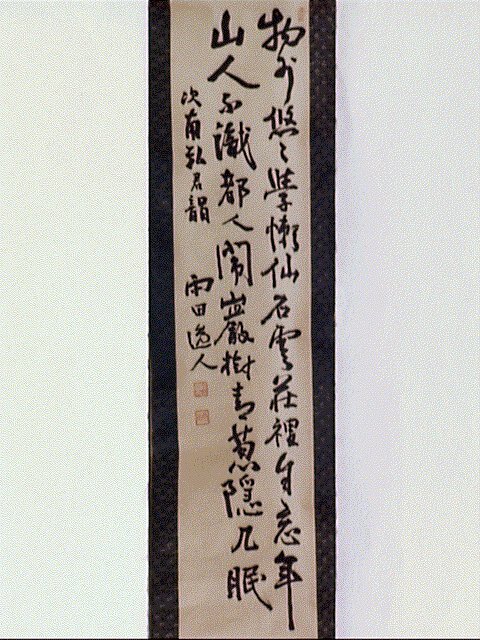 物外悠々學懶仙石雲荘裡自忘年
山人不識都人鬧巖樹青葱隠几眠
次南弘君韻
雨田逸人